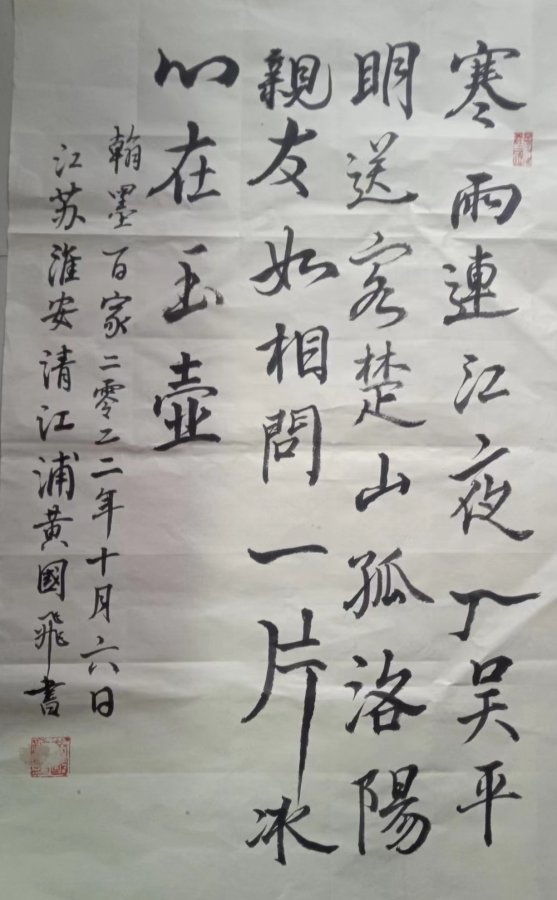 寒雨連江夜入吴平
明送客楚山孤洛陽
親友如相問一片冰
心在玉壺
翰墨百家二零二二年十月六日
江苏淮安请江浦黄國飛書